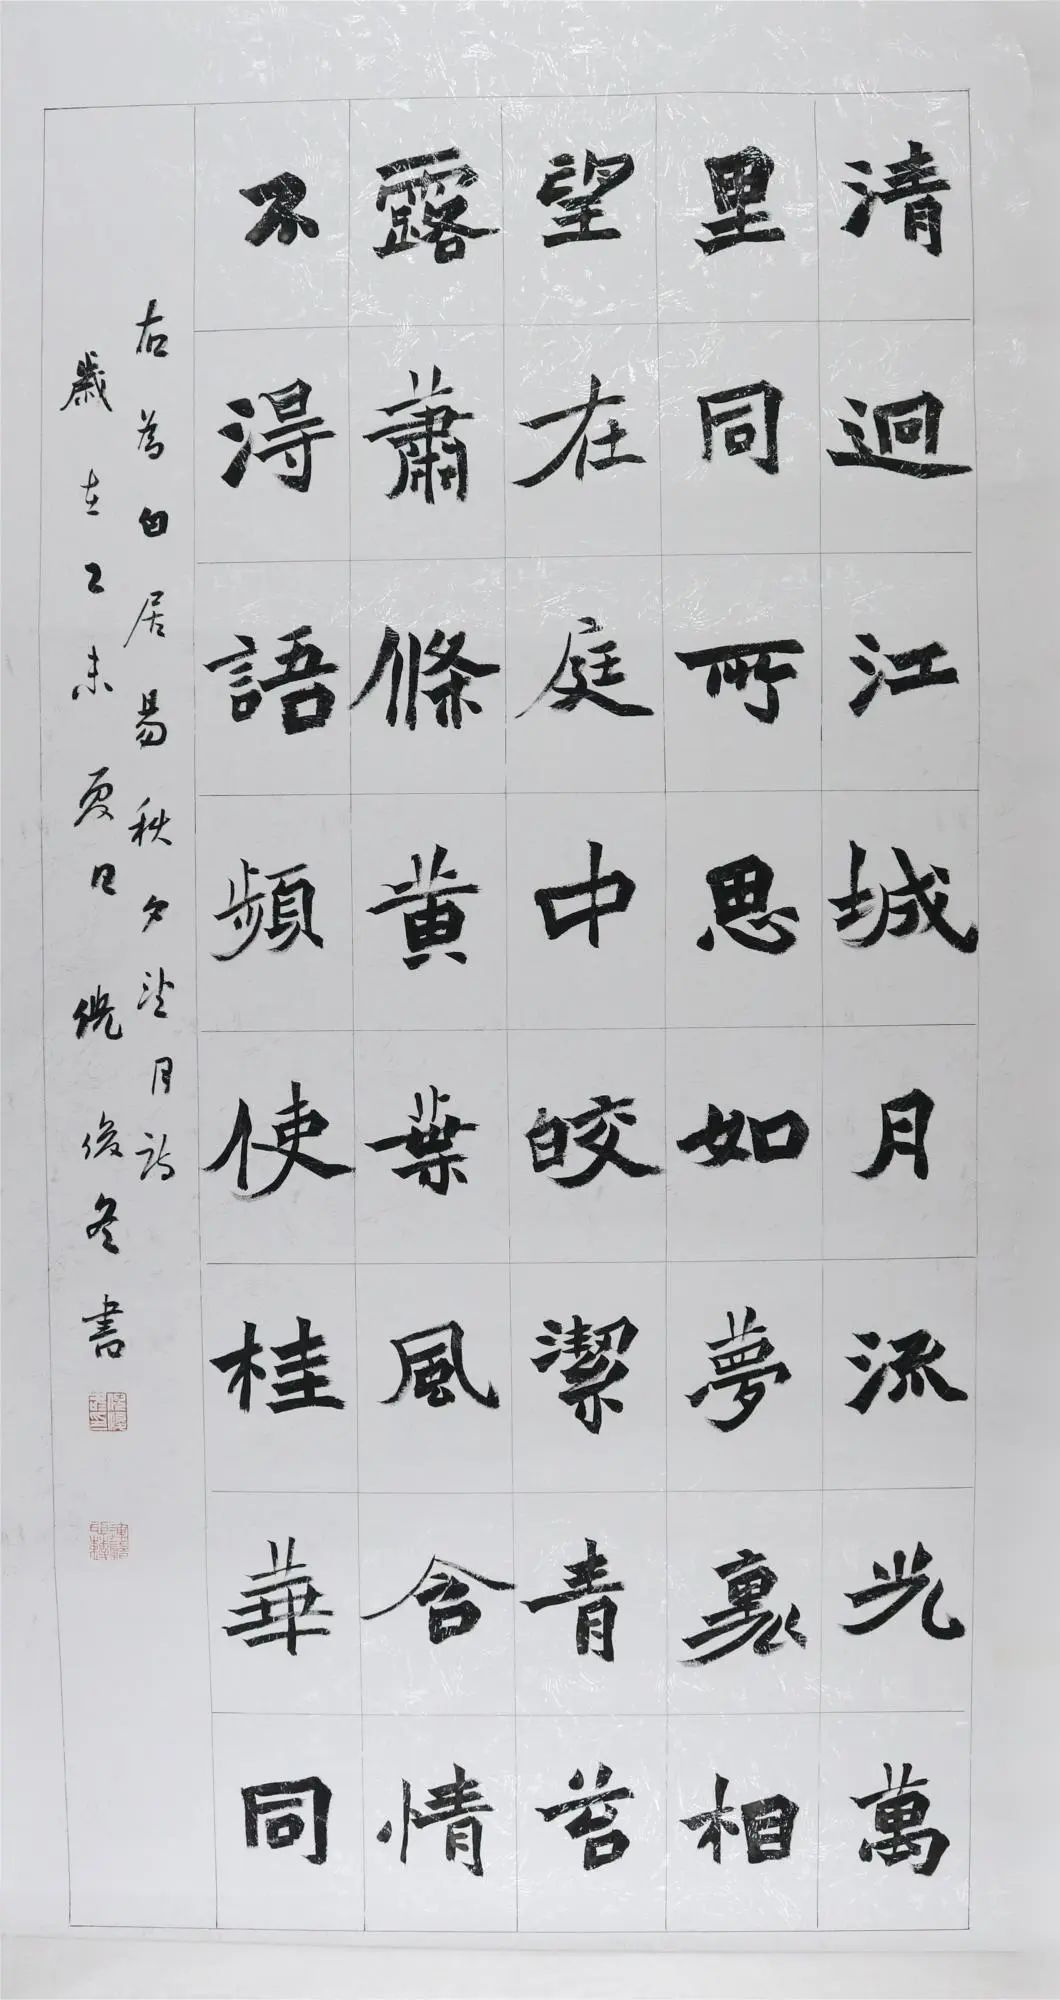 清迥江城月流光萬
里同所思如夢裏相
望在庭中皎潔青苔
露蕭條黄葉風含情
不得語頻使桂華同
右為白居易秋夕望月詩
歲在乙未夏日倪俊冬書